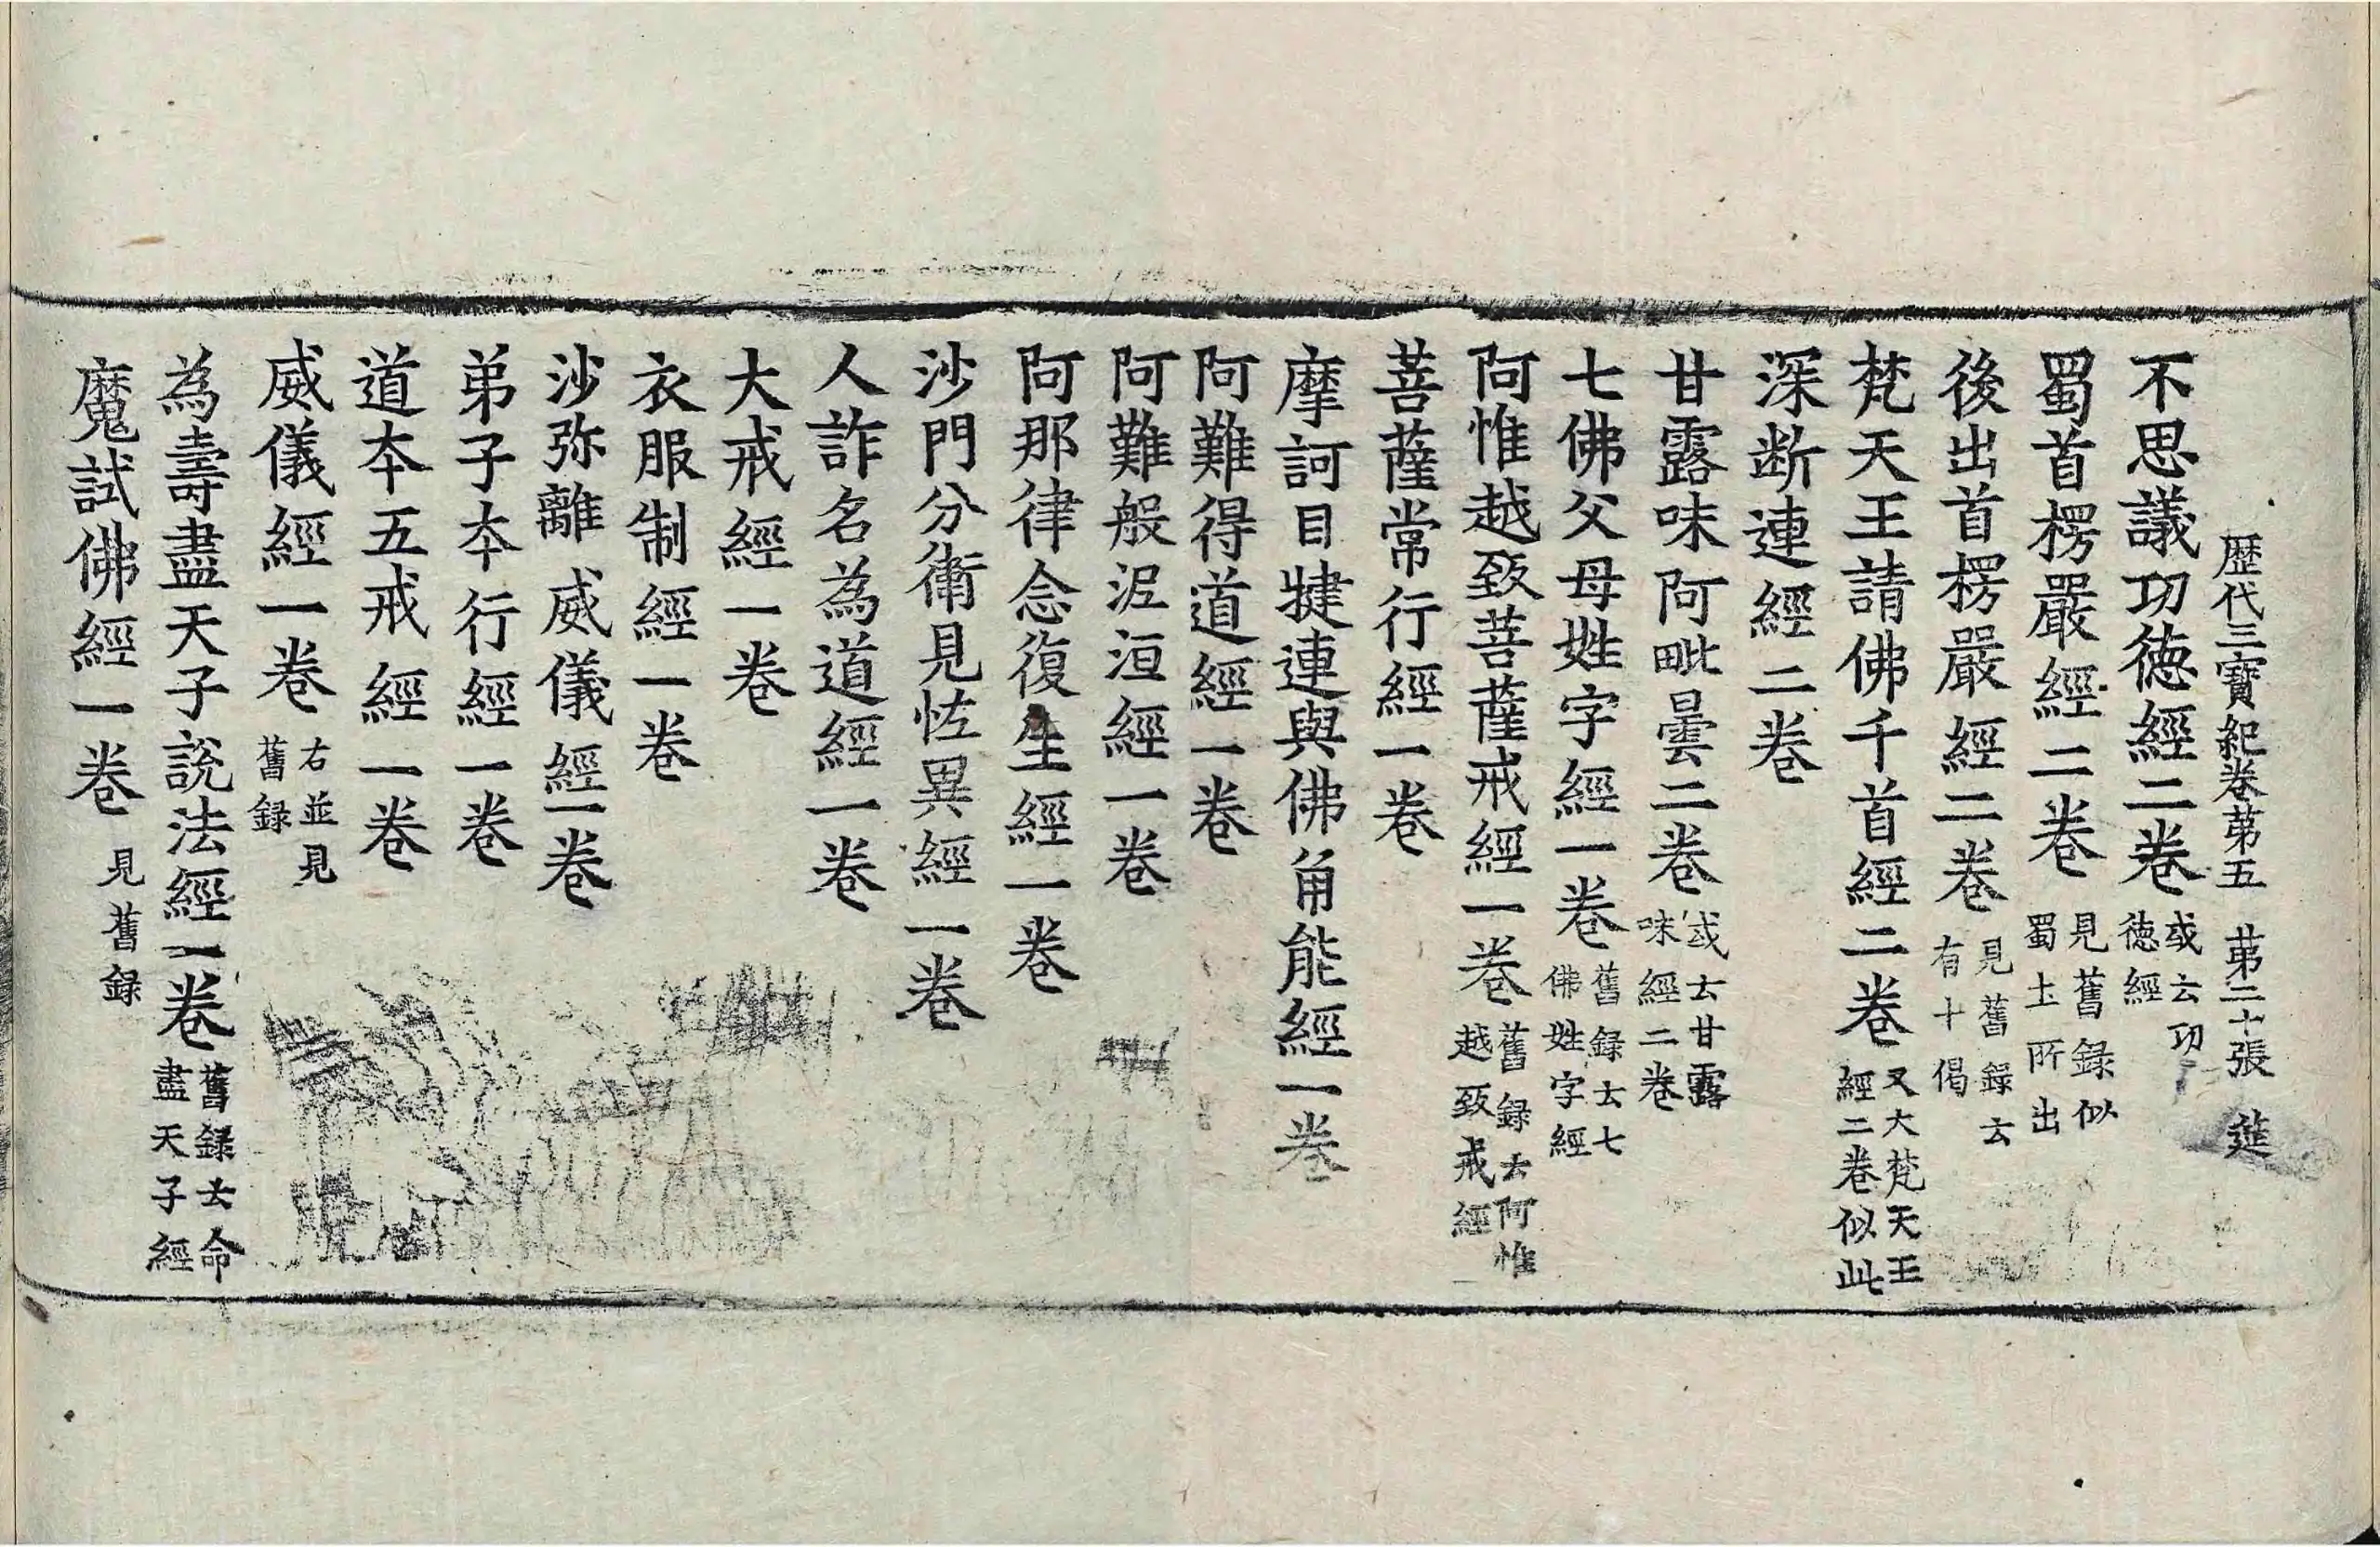 歷代三寶紀卷苐五 苐二十張 莚
不思議功德經二卷 或云功德經
蜀首楞嚴經二卷 見舊録似蜀土所出
後出首楞嚴經二卷 見舊録云有十偈
梵天王請佛千首經二卷 又大梵天王經二卷似此
深断連經二卷
甘露味阿毗曇二卷 或云甘露味經二卷
七佛父母姓字經一卷 舊録云七佛姓字經
阿惟越致菩薩戒經一卷 舊録云阿惟越致戒經
菩薩常行經一卷
摩訶目犍連與佛角能經一卷
阿難得道經一卷
阿難般泥洹經一卷
阿那律念復生經一卷
沙門分衛見恠異經一卷
人詐名為道經一卷
大戒經一卷
衣服制經一卷
沙弥離威儀經一卷
弟子本行經一卷
道本五戒經一卷
威儀經一卷 右並見舊録
為壽盡天子說法經一卷 舊録云命盡天子經
魔試佛經一卷 見舊録